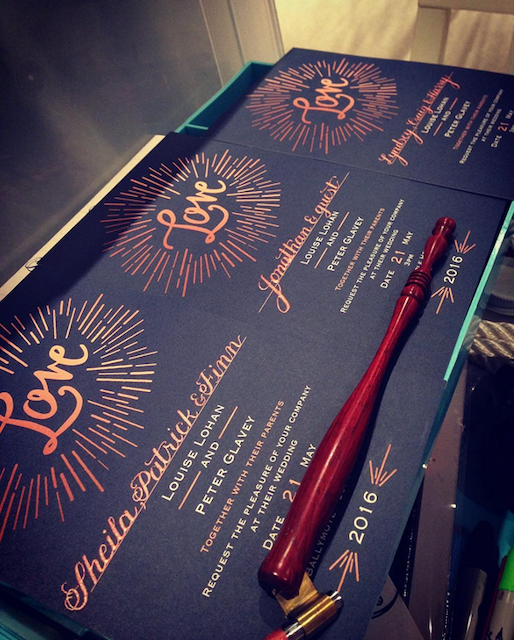 Love
Lyndsey, Craig & Harry
Louise Lohan
and
Peter Glavey
Together with their parents
Request the pleasure of your company
at their wedding
Date 21 May
Love
Jonathan & guest
Louise Lohan
and
Peter Glavey
Together with their parents
Request the pleasure of your company
at their wedding
Date 21 May
2016
3pm
Love
Sheila, Patrick & Finn
Louise Lohan
and
Peter Glavey
Together with their parents
Request the pleasure of your company
at their wedding
Date 21 May
2016